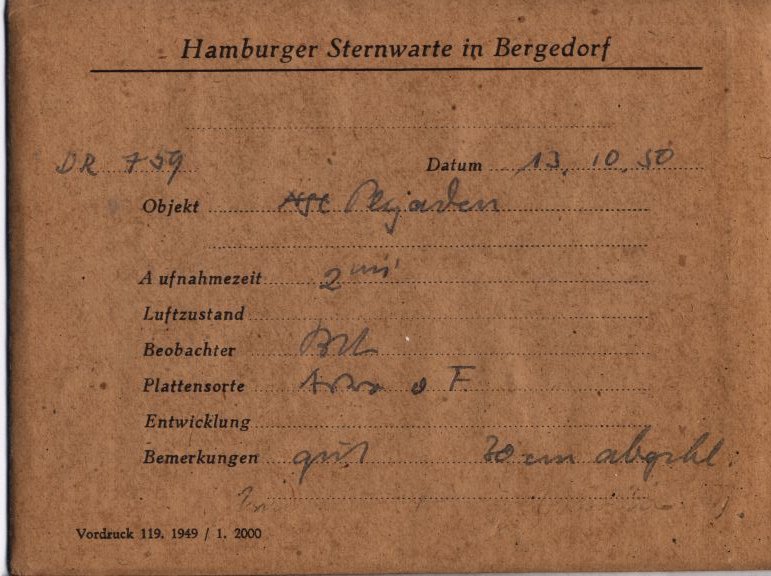 Hamburger Sternwarte in Bergedorf
DR 759 Datum 13. 10. 50
Objekt Plejaden
Aufnahmezeit 2 min
Luftzustand
Beobachter
Plattensorte F
Entwicklung
Bemerkungen gut 70 cm
Vordruck 119. 1949 / 1. 2000